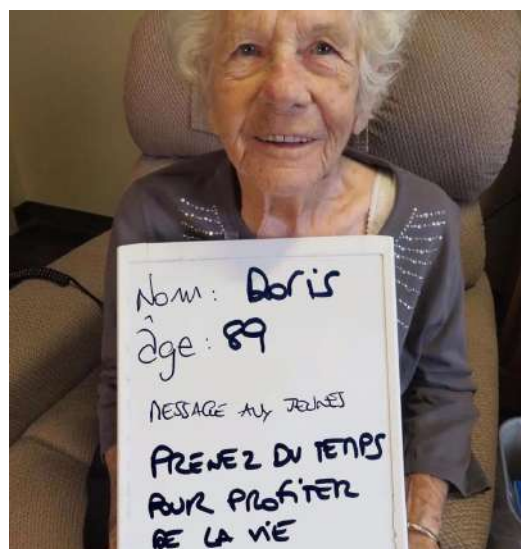 Nom: Doris
âge: 89
MESSAGE AUX JEUNES
PRENEZ DU TEMPS
POUR PROFITER
DE LA VIE